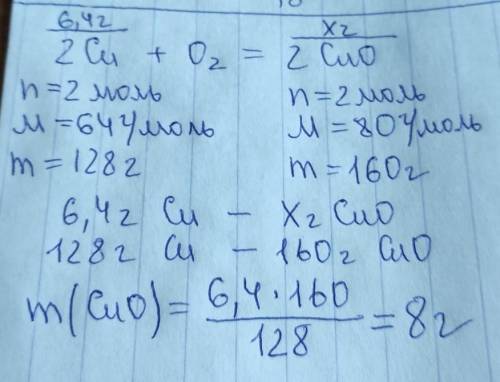 6,4г xг
2 Cu + O₂ = 2 CuO
n = 2 моль n = 2 моль
M = 64 г/моль M = 80 г/моль
m = 128 г m = 160 г
6,4 г Cu – X г CuO
128 г Cu – 160 г CuO
m(CuO) = 6,4 · 160 / 128 = 8 г